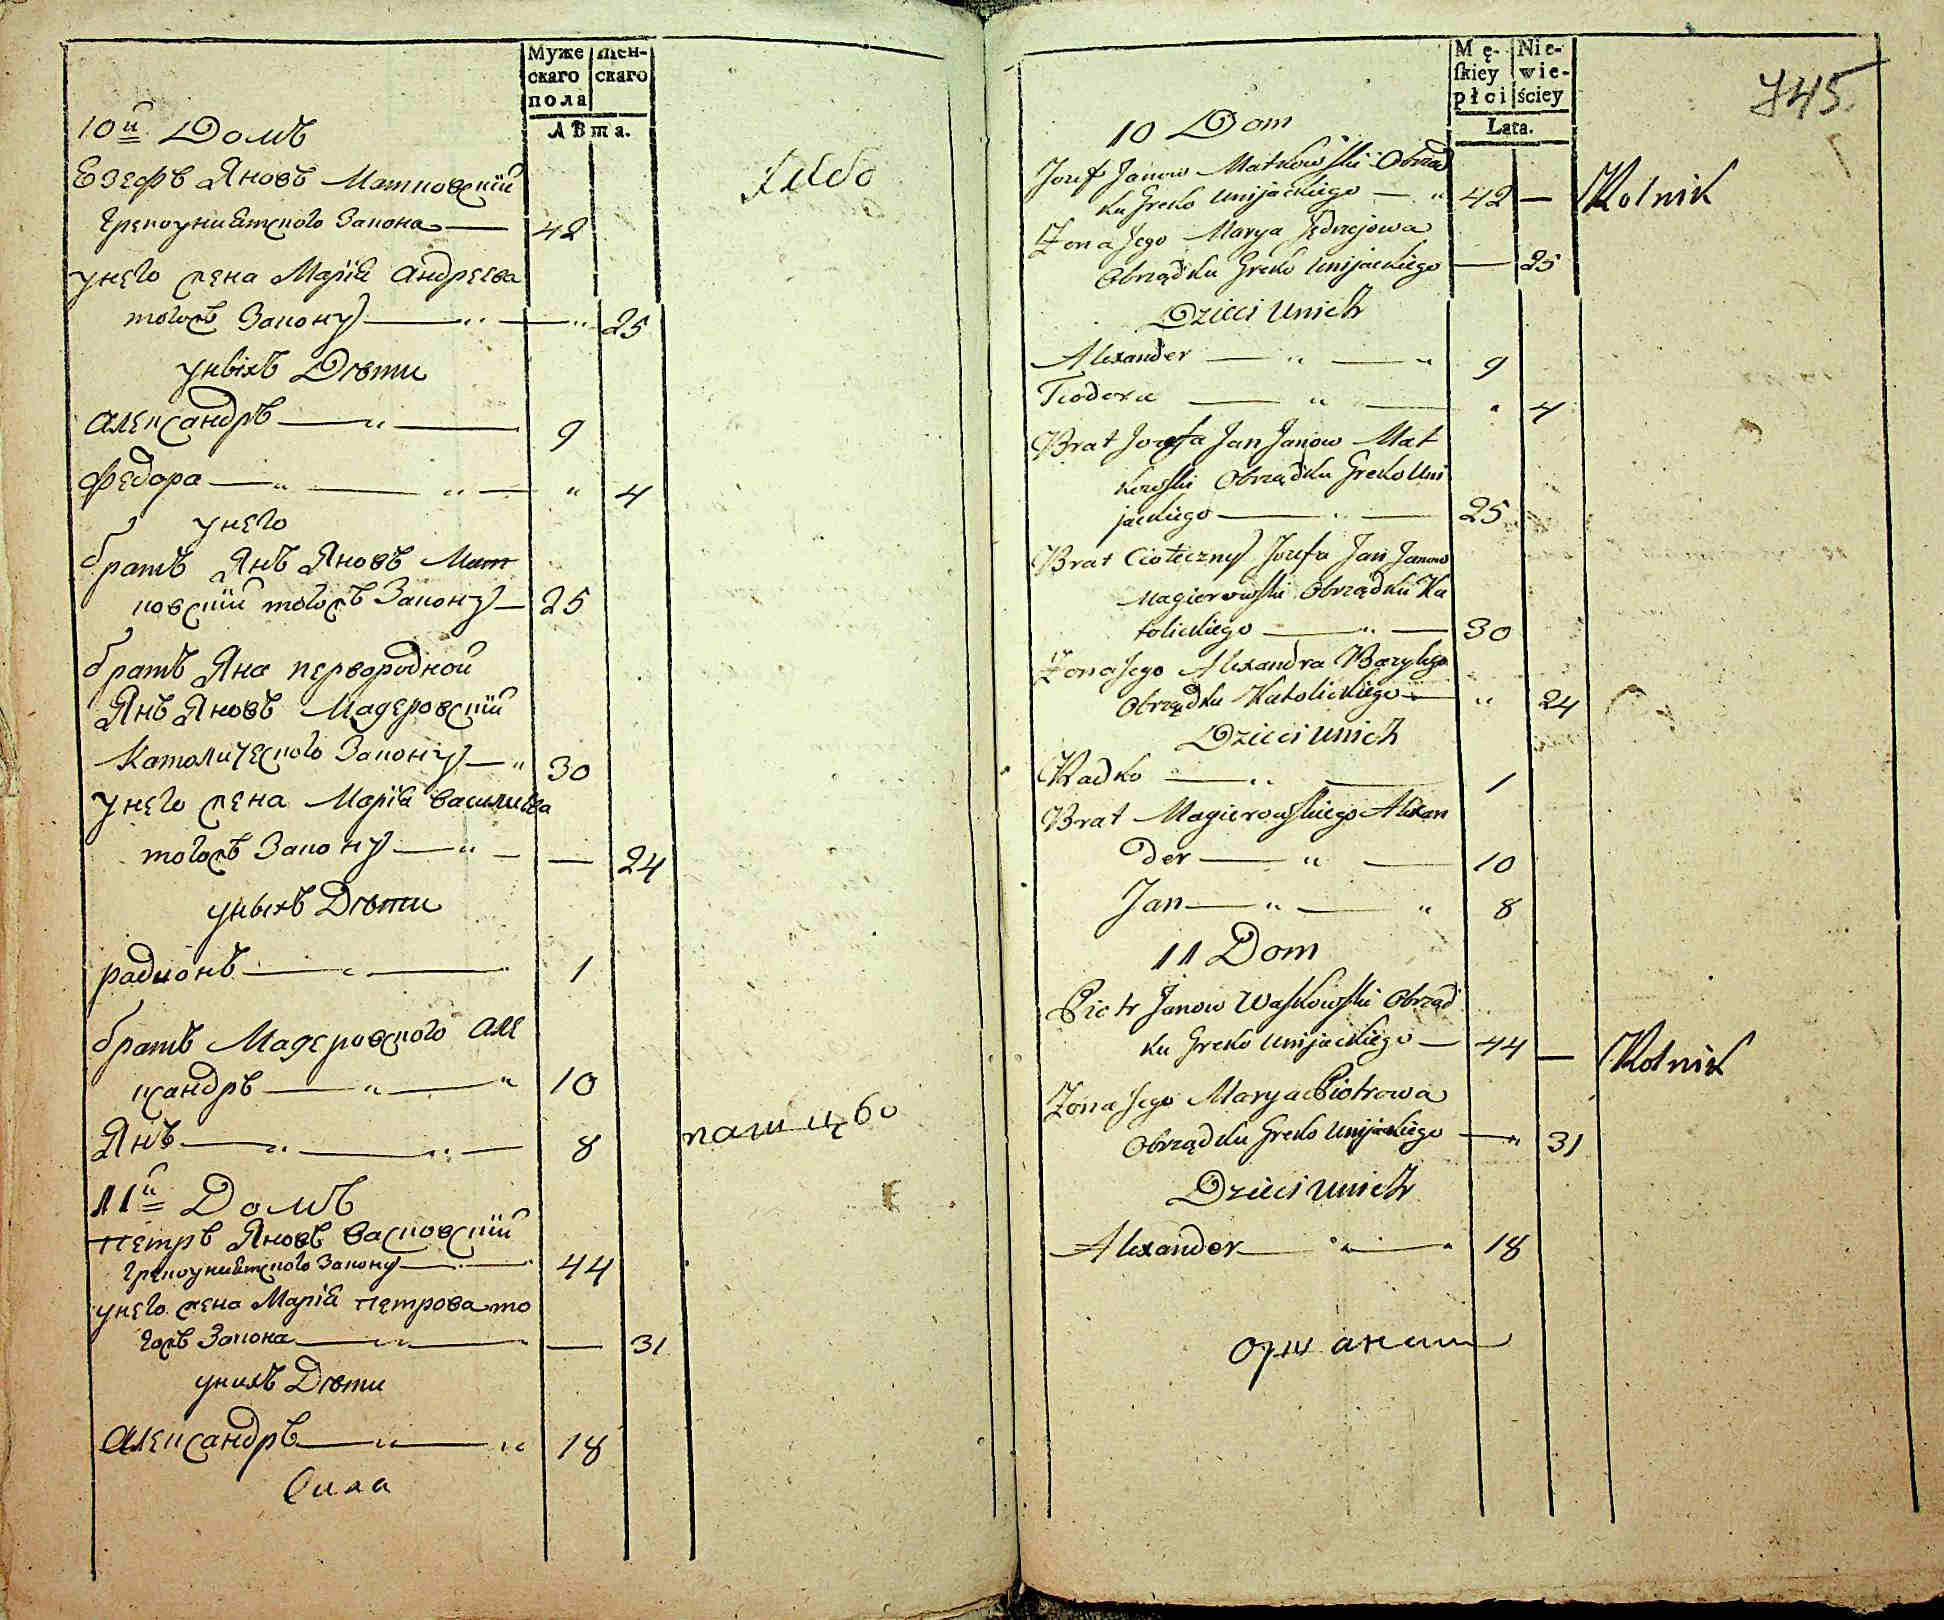 Муже
скаго
пола
жен-
скаго
лѣта.
10й Домъ
Езефъ Яновъ Матковскій
Грекоуніятского Закона 42
унего жена Марія Андреева
тогожъ Закону 25
унихъ Дѣти
Александръ 9
Федора 4
унего
братъ Янъ Яновъ Мат
ковскій тогожъ Закону 25
братъ Яна первородной
Янъ Яновъ Магеровскій
Католического Закону 30
унего жена Марія Васильева
тогожъ Закону 24
унихъ Дѣти
радионъ 1
братъ Магеровского Але
ксандръ 10
Янъ 8
11й Домъ
петръ Яновъ Васковскій
Грекоуніятского Закону 44
унего жена Марія петрова то
гожъ Закона 31
унихъ Дѣти
Александръ 18
Сила
Либо
Mę-
skiey
płci
Nie-
wie-
ściey
Lata.
745.
10 Dom
Jozef Janow Matkowski Obrząd
ku Greko Unijackiego 42 Rolnik
Zona Jego Marya Jędrzejowa
Obrządku Greko Unijackiego 25
Dzieci Unich
Alexander 9
Teodora 4
Brat Jozefa Jan Janow Mat
kowski Obrządku Greko Uni
jackiego 25
Brat Cioteczny Jozefa Jan Janow
Magierowski Obrządku Ka
tolickiego 30
Zona Jego Alexandra Bazylego
Obrządku Katolickiego 24
Dzieci Unich
Radko 1
Brat Magierowskiego Alexan
der 10
Jan 8
11 Dom
Piotr Janow Waskowski Obrząd
ku Greko Unijackiego 44 Rolnik
Zona Jego Marya Piotrowa
Obrządku Greko Unijackiego 31
Dzieci Unich
Alexander 18